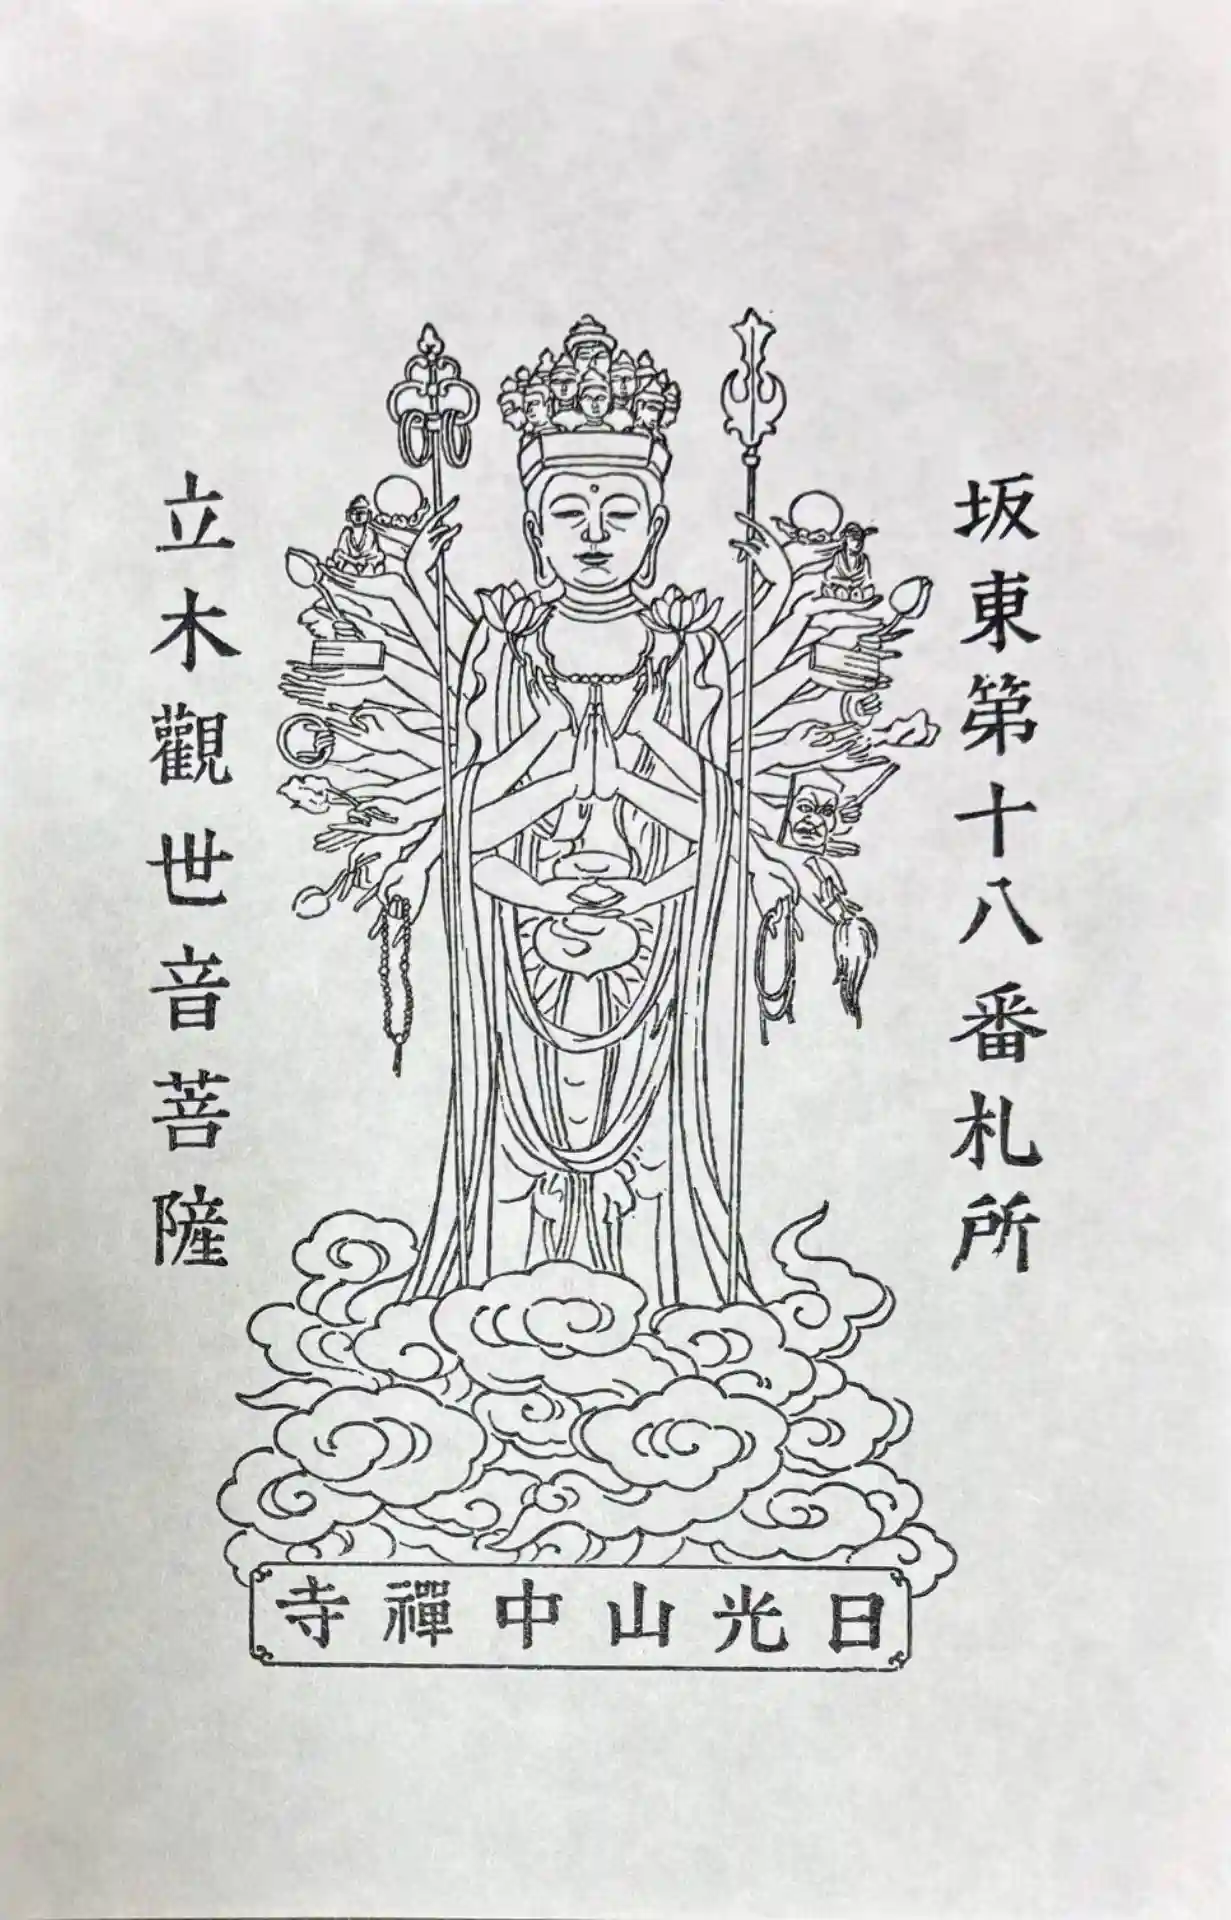 坂東第十八番札所
立木觀世音菩薩
日光山中禪寺